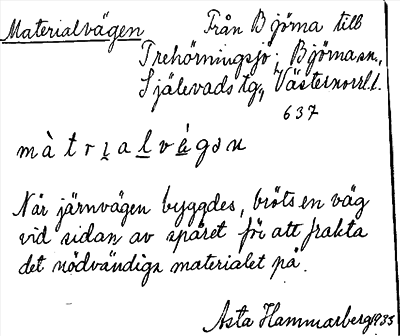 Materialvägen Från Björna till
Trehörningsjö; Björna sn.,
Själevads tg., Västernorrl. l.
637
Når järnvägen byggdes, bröts en väg
vid sidan av spåret för att frakta
det nödvändiga materialet på.
Asta Hammarberg 1935